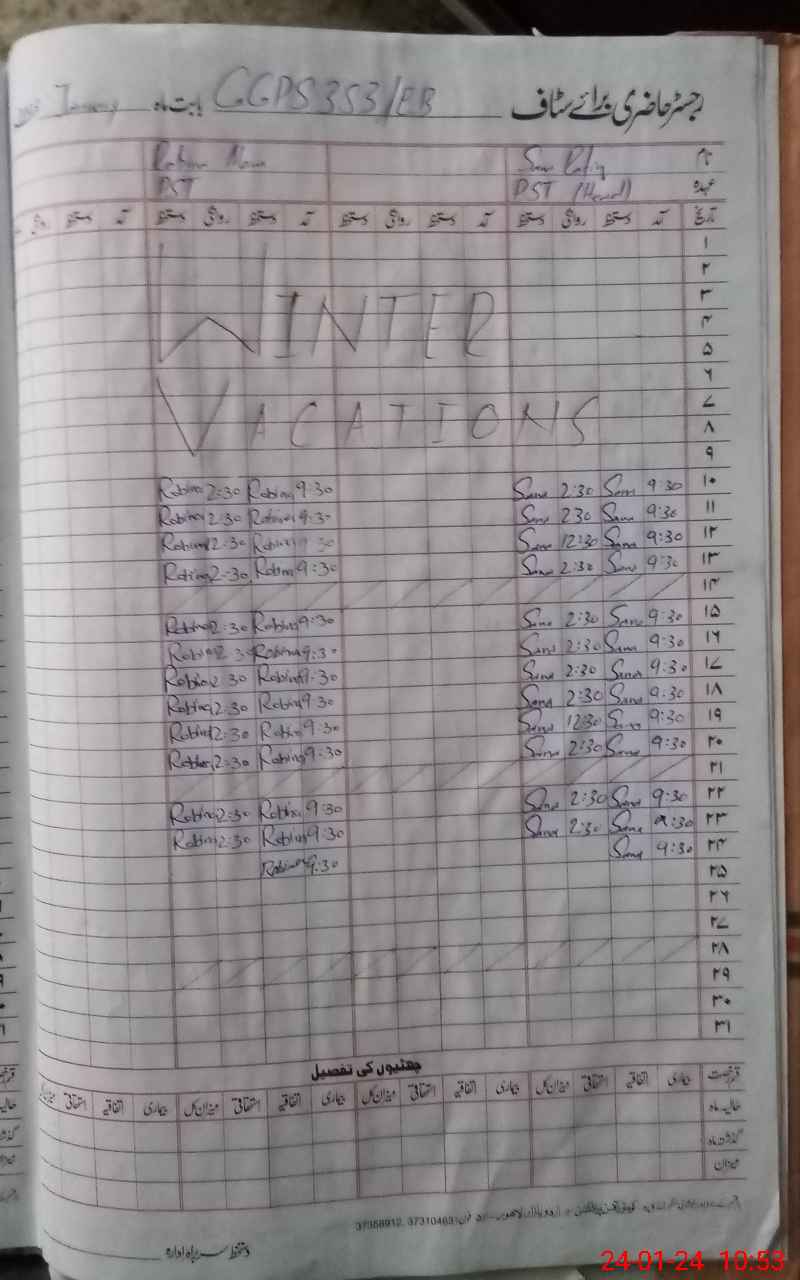 رجسٹر حاضری برائے سٹاف بابت ماہ GGPS 353/EB January
نام Sana Rafiq Robina
عہدہ PST (Head) PST
تاریخ آمد دستخط روانگی دستخط آمد دستخط روانگی دستخط آمد دستخط روانگی دستخط آمد دستخط
۱
۲
۳
۴
۵
WINTER
۶
۷
۸
VACATIONS
۹
۱۰ 9:30 Sana 2:30 Sana 9:30 Robina 2:30 Robina
۱۱ 9:30 Sana 2 30 Sana 9:30 Robina 2:30 Robina
۱۲ 9:30 Sana 12:30 Sana 9 30 Robina 2:30 Robina
۱۳ 9:30 Sana 2:30 Sana 9:30 Robina 2:30 Robina
۱۴
۱۵ 9:30 Sana 2:30 Sana 9:30 Robina 2:30 Robina
۱۶ 9:30 Sana 2:30 Sana 9:30 Robina 2:30 Robina
۱۷ 9:30 Sana 2:30 Sana 9:30 Robina 2:30 Robina
۱۸ 9:30 Sana 2:30 Sana 9:30 Robina 2:30 Robina
۱۹ 9:30 Sana 12:30 Sana 9:30 Robina 2:30 Robina
۲۰ 9:30 Sana 2:30 Sana 9:30 Robina 2:30 Robina
۲۱
۲۲ 9:30 Sana 2:30 Sana 9:30 Robina 2:30 Robina
۲۳ 9:30 Sana 2:30 Sana 9:30 Robina 2:30 Robina
۲۴ 9:30 Sana 9:30 Robina
۲۵
۲۶
۲۷
۲۸
۲۹
۳۰
۳۱
چھٹیوں کی تفصیل
قسم رخصت بیماری اتفاقیہ استحقاقی میزان کل بیماری اتفاقیہ استحقاقی میزان کل بیماری اتفاقیہ استحقاقی میزان کل بیماری اتفاقیہ استحقاقی
حالیہ ماہ
گذشتہ ماہ
میزان
اردو بازار لاہور فون: 37310463, 37358912
دستخط سربراہ ادارہ
24-01-24 10:53